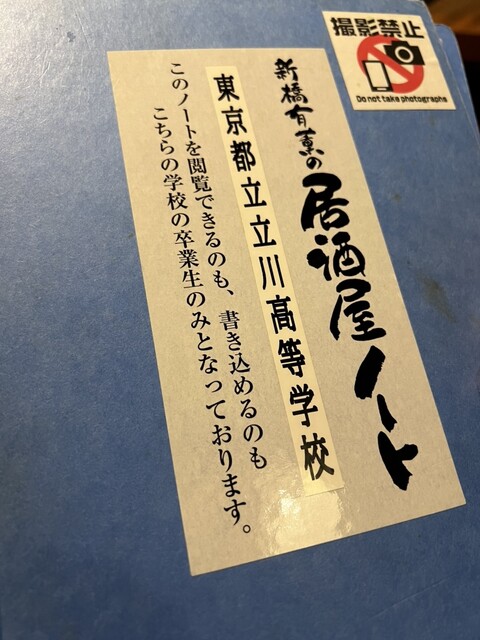 撮影禁止
Do not take photographs
新橋有薫の
居酒屋ノート
東京都立立川高等学校
このノートを閲覧できるのも、書き込めるのも
こちらの学校の卒業生のみとなっております。